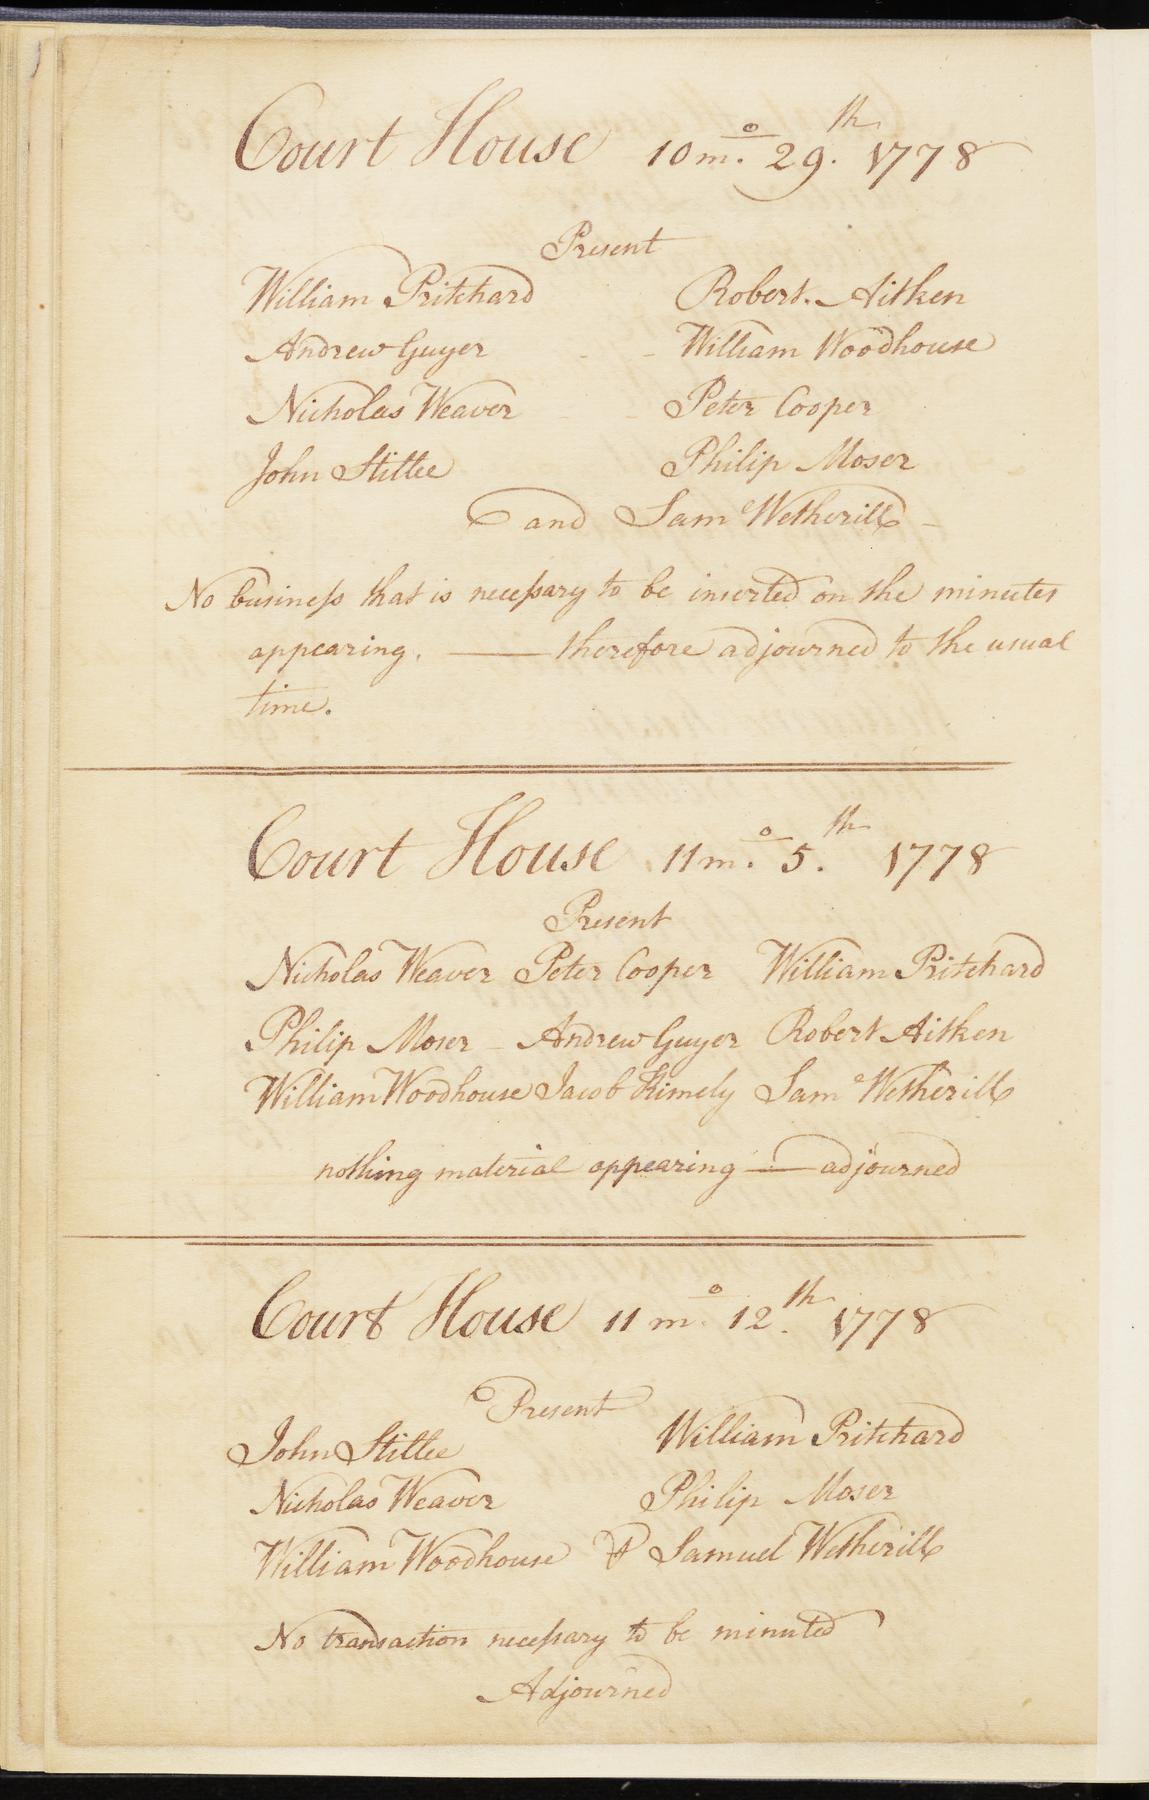 Court House 10m.o 29.th 1778
Present
William Pritchard Robert. Aitken
Andrew Guyer - - William Woodhouse
Nicholas Weaver - - Peter Cooper
John Stillee Philip Moser
and Sam Wetherill -
No business that is necessary to be inserted on the minutes
appearing. — therefore adjourned to the usual
time.
Court House 11m.o 5.th 1778
Present
Nicholas Weaver Peter Cooper William Pritchard
Philip Moser - Andrew Guyer Robert Aitken
William Woodhouse Jacob Kimely Sam Wetherill
nothing material appearing — adjourned
Court House 11m.o 12.th 1778
Present
John Stillee William Pritchard
Nicholas Weaver Philip Moser
William Woodhouse & Samuel Wetherill
No transaction necessary to be minuted
Adjourned